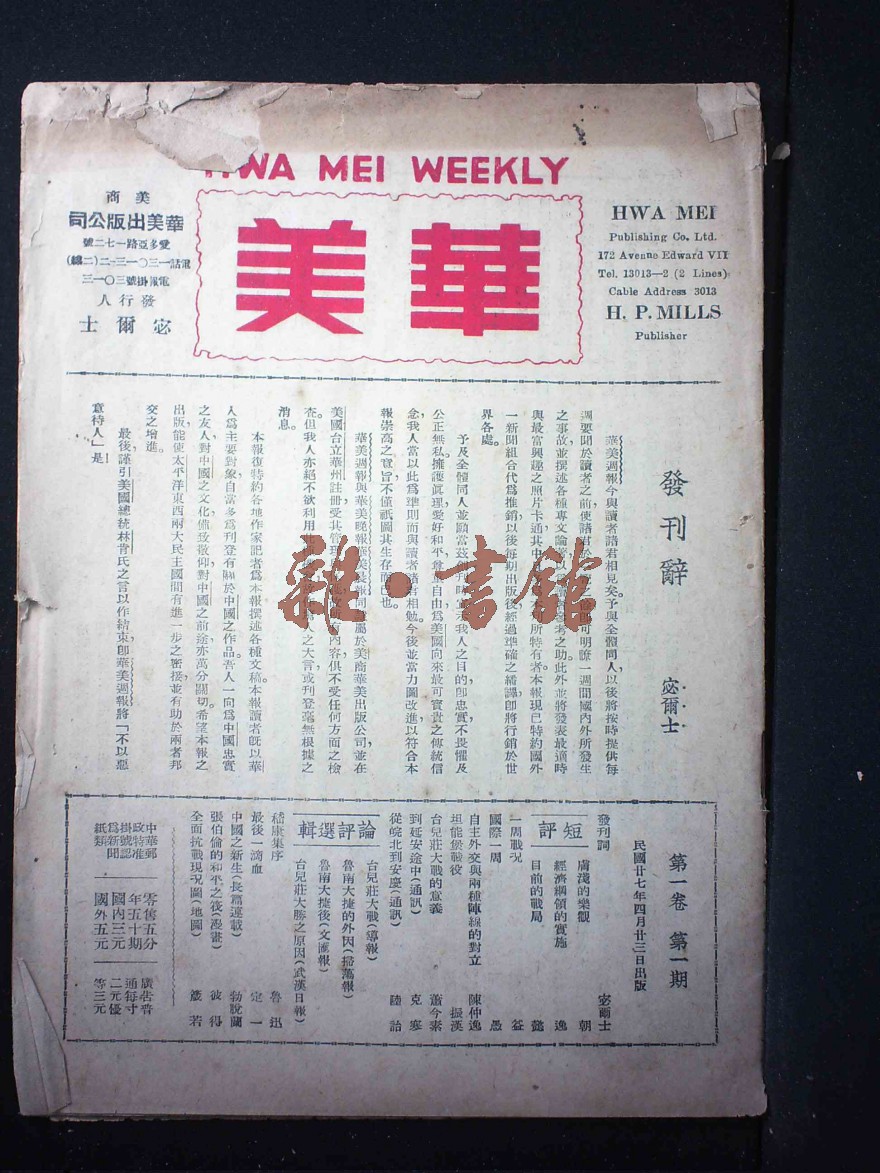 HWA MEI WEEKLY
華美
HWA MEI
Publishing Co. Ltd.
172 Avenue Edward VII
Tel. 13013—2 (2 Lines)
Cable Address 3013
H. P. MILLS
Publisher
美商
華美出版公司
愛多亞路一七二號
電話一三〇一三—二(二線)
電報掛號三〇一三
發行人
宓爾士
發刊辭
宓爾士
華美週報今與讀者諸君相見矣。予與全體同人,以後將按時提供每
週要聞於讀者之前,使諸君於
可明瞭一週間國內外所發生
之事故,並撰述各種專文論著
參考之助。此外並將發表最適時
與最富興趣之照片卡通,其中
所特有者。本報現已特約國外
一新聞組合代為推銷,以後每期出版後,經過準確之繙譯,即將行銷於世
界各處。
予及全體同人並願當茲
我人之目的,即忠實不畏懼及
公正無私,擁護眞理,愛好和平,尊重自由,為美國向來最可寶貴之傳統信
念,我人當以此為準則,而與讀者諸君相勉。今後並當力圖改進,以符合本
報崇高之意旨,不僅祇圖其生存而已也。
華美週報與華美晚報華美晨報同
屬於美商華美出版公司,並在
美國台立華州註冊,受其管理
內容俱不受任何方面之檢
查。但我人亦絕不欲利用
之大言,或刊登毫無根據之
消息。
本報復特約各地作家記者為本報撰述各種文稿。本報讀者旣以華
人為主要對象,自當多為刊登有關於中國之作品。吾人一向為中國忠實
之友人,對中國之文化備致敬仰,對中國之前途亦萬分關切。希望本報之
出版,能使太平洋東西兩大民主國間有進一步之密接,並有助於兩者邦
交之增進。
最後,謹引美國總統林肯氏之言以作結束,即華美週報將「不以惡
意待人」是!
第一卷 第一期
民國廿七年四月廿三日出版
發刊詞 宓爾士
短評
膚淺的樂觀 朝
經濟綱領的實施 逸
目前的戰局 懿
一周戰況 益
國際一周 愚
自主外交與兩種陣線的對立 陳仲逸
坦能堡戰役 振漢
台兒莊大戰的意義 蕭今素
到延安途中(通訊) 克寒
從皖北到安慶(通訊) 陸詒
論評選輯
台兒莊大戰(導報)
魯南大捷的外因(掃蕩報)
魯南大捷後(文滙報)
台兒莊大勝之原因(武漢日報)
嵇康集序 魯迅
最後一滴血 定一
中國之新生(長篇連載) 勃脫蘭
張伯倫的和平之夜(漫畫) 彼得
全面抗戰現况圖(地圖) 蘆若
中華郵
政特准
掛號認
為新聞
紙類
零售五分
年五十期
國內三元
國外五元
廣告普
通每寸
二元優
等三元
雜·書館